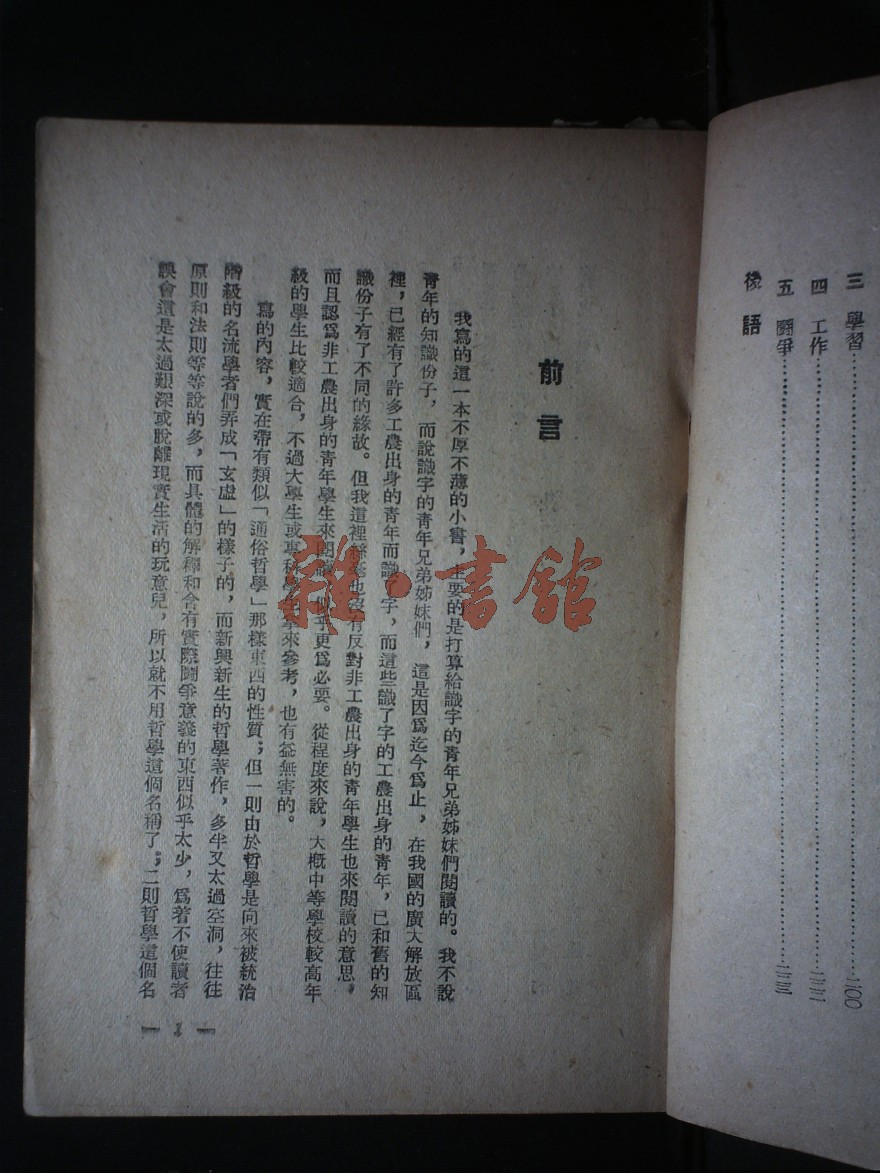 三 學習……二〇〇
四 工作……二二二
五 鬪爭……二三三
後語
前言
我寫的這一本不厚不薄的小書，主要的是打算給識字的青年兄弟姊妹們閱讀的。我不說
青年的知識份子，而說識字的青年兄弟姊妹們，這是因爲迄今爲止，在我國的廣大解放區
裡，已經有了許多工農出身的青年而識了字，而這些識了字的工農出身的青年，已和舊的知
識份子有了不同的緣故。但我這裡絲毫也沒有反對非工農出身的青年學生也來閱讀的意思，
而且認爲非工農出身的青年學生來閱讀，似乎更爲必要。從程度來說，大概中等學校較高年
級的學生比較適合，不過大學生或專科學生拿來參考，也有益無害的。
寫的內容，實在帶有類似「通俗哲學」那樣東西的性質；但一則由於哲學是向來被統治
階級的名流學者們弄成「玄虛」的樣子的，而新興新生的哲學著作，多半又太過空洞，往往
原則和法則等等說的多，而具體的解釋和含有實際鬪爭意義的東西似乎太少，爲着不使讀者
誤會這是太過艱深或脫離現實生活的玩意兒，所以就不用哲學這個名稱了；二則哲學這個名
1
雜·書館